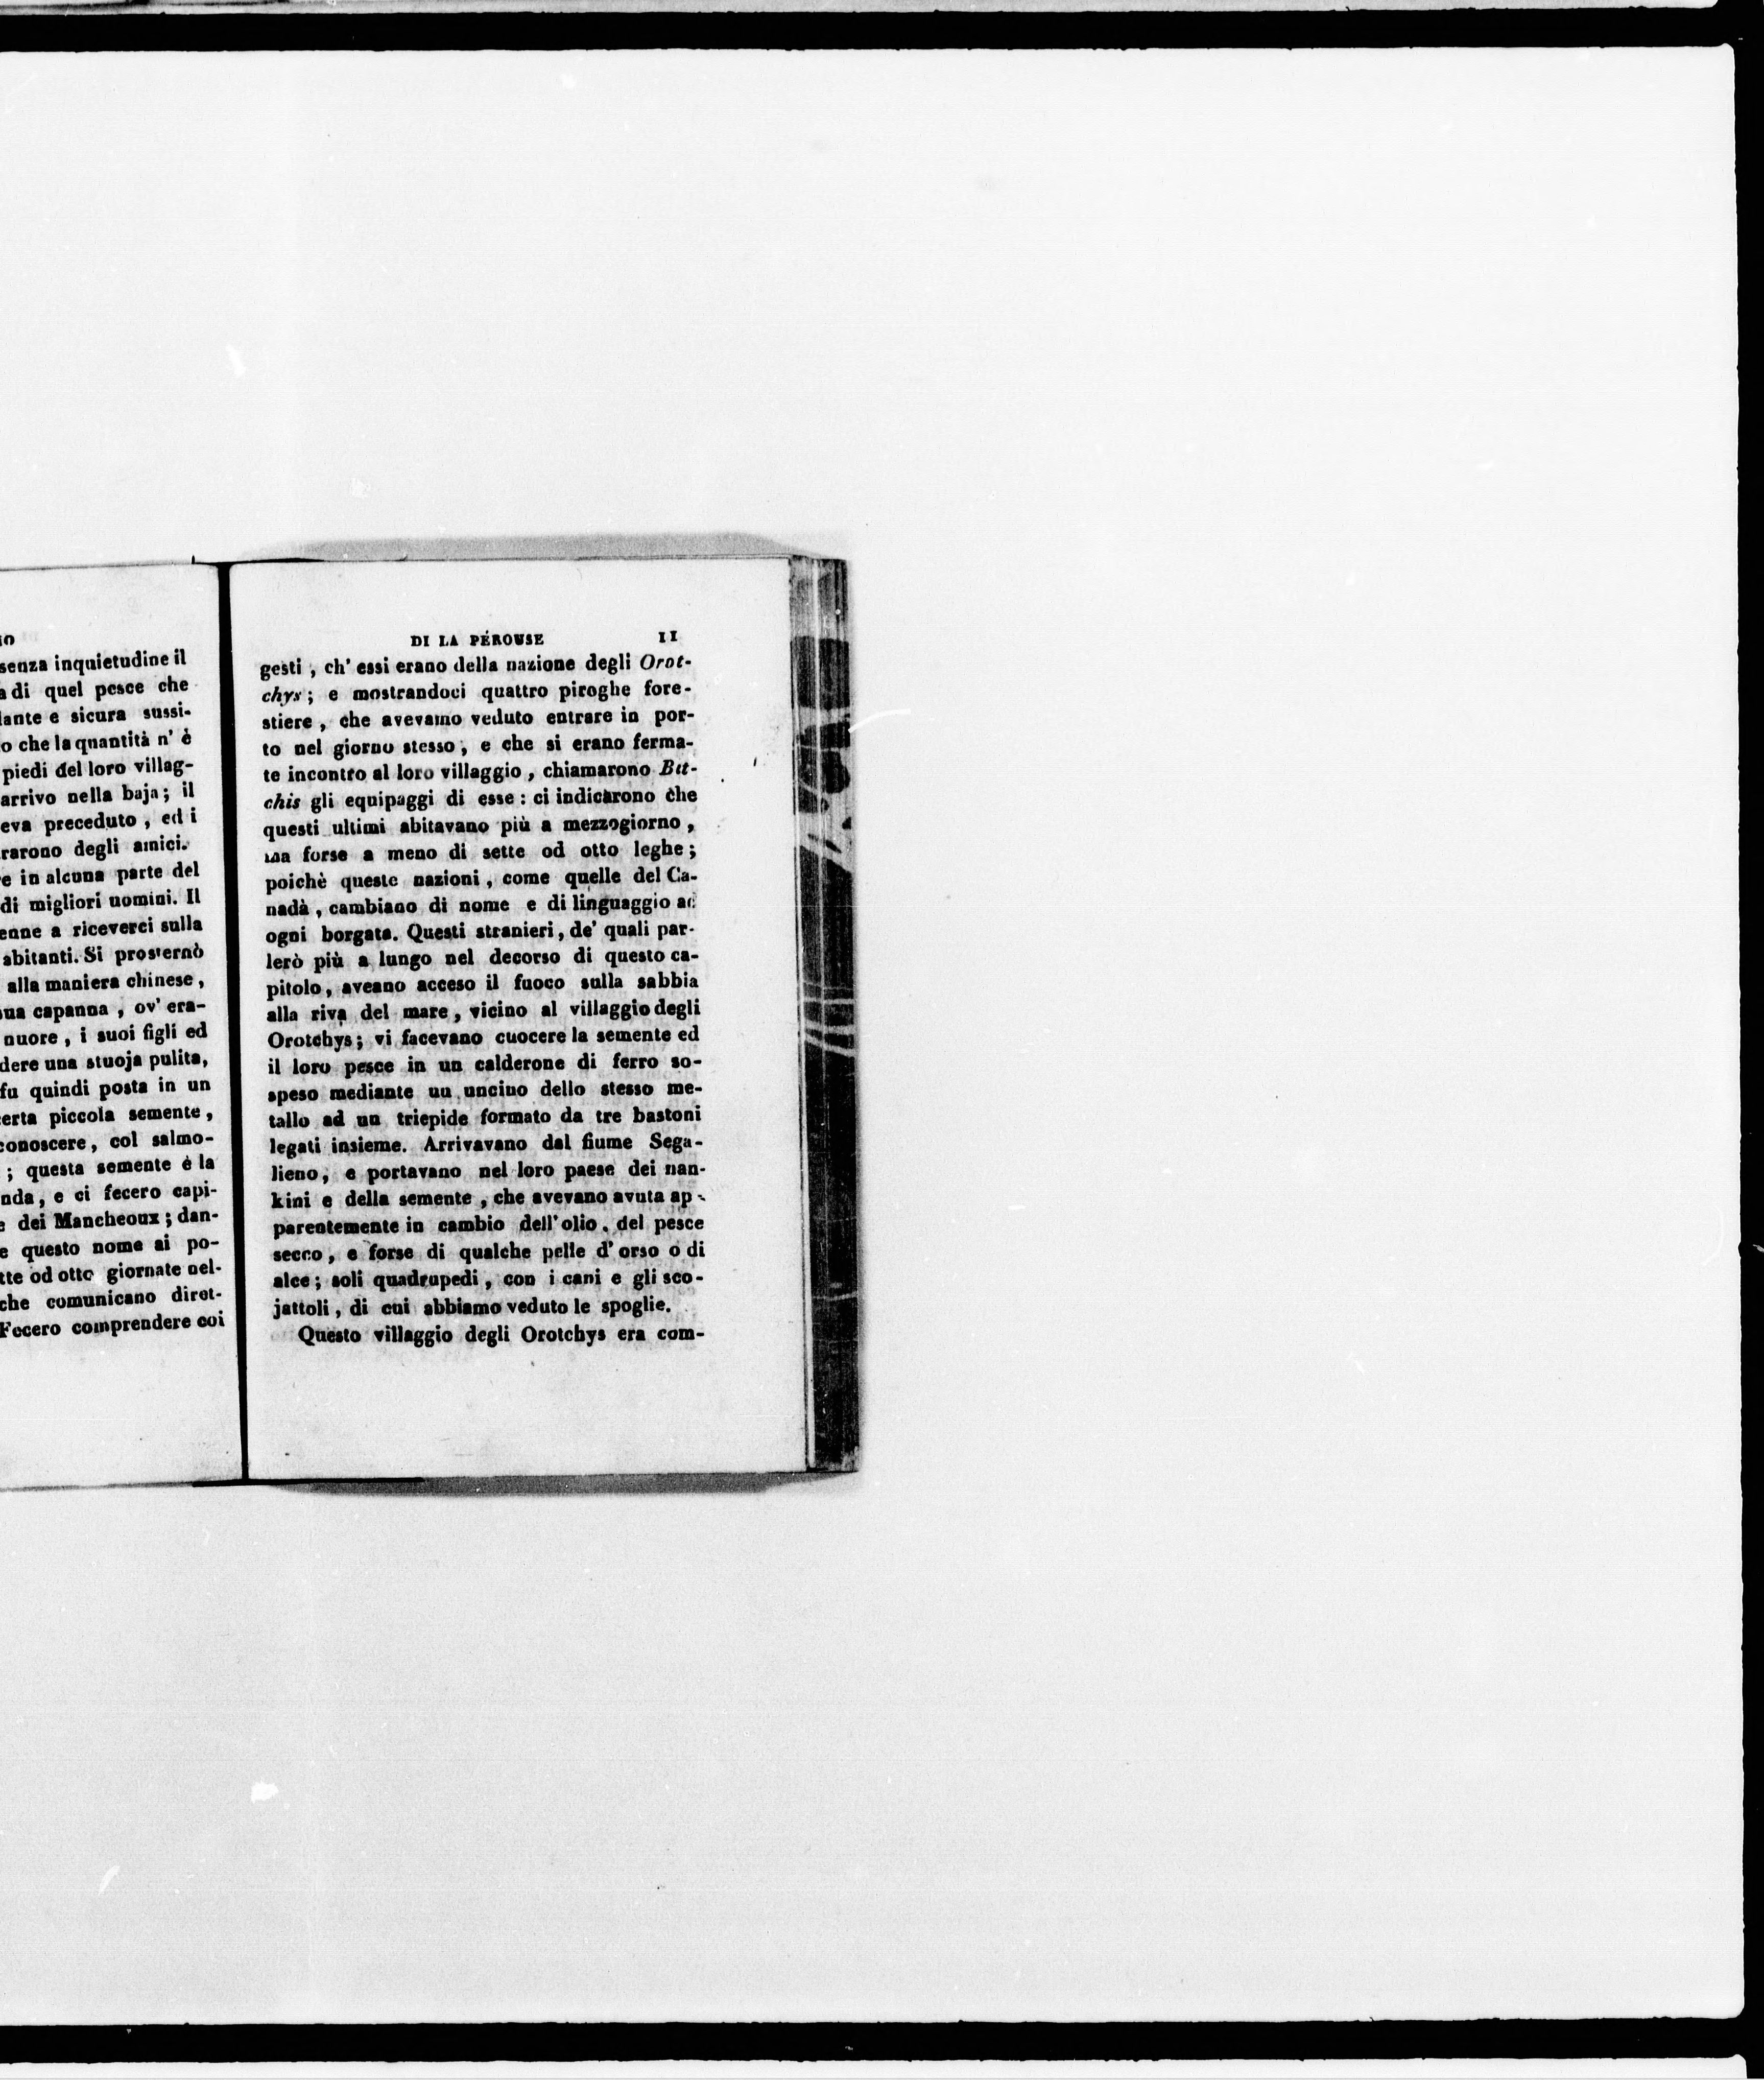 senza inquietudine il
di quel pesce che
e sicura sussi-
che la quantità n' è
piedi del loro villag-
arrivo nella baja; il
preceduto, ed i
degli amici.
in alcuna parte del
di migliori uomini. Il
a riceverci sulla
abitanti. Si prosternò
alla maniera chinese,
capanna, ov' era-
nuore, i suoi figli ed
una stuoja pulita,
fu quindi posta in un
piccola semente,
conoscere, col salmo-
; questa semente è la
e ci fecero capi-
dei Mancheoux; dan-
questo nome ai po-
od otto giornate nel-
che comunicano diret-
Fecero comprendere coi
DI LA PÉROUSE 11
gesti, ch' essi erano della nazione degli Orot-
chys; e mostrandoci quattro piroghe fore-
stiere, che avevamo veduto entrare in por-
to nel giorno stesso, e che si erano ferma-
te incontro al loro villaggio, chiamarono Bit-
chis gli equipaggi di esse: ci indicarono che
questi ultimi abitavano più a mezzogiorno,
ma forse a meno di sette od otto leghe;
poichè queste nazioni, come quelle del Ca-
nadà, cambiano di nome e di linguaggio ad
ogni borgata. Questi stranieri, de' quali par-
lerò più a lungo nel decorso di questo ca-
pitolo, aveano acceso il fuoco sulla sabbia
alla riva del mare, vicino al villaggio degli
Orotchys; vi facevano cuocere la semente ed
il loro pesce in un calderone di ferro so-
speso mediante un uncino dello stesso me-
tallo ad un triepide formato da tre bastoni
legati insieme. Arrivavano dal fiume Sega-
lieno, e portavano nel loro paese dei nan-
kini e della semente, che avevano avuta ap-
parentemente in cambio dell'olio, del pesce
secco, e forse di qualche pelle d' orso o di
alce; soli quadrupedi, con i cani e gli sco-
jattoli, di cui abbiamo veduto le spoglie.
Questo villaggio degli Orotchys era com-